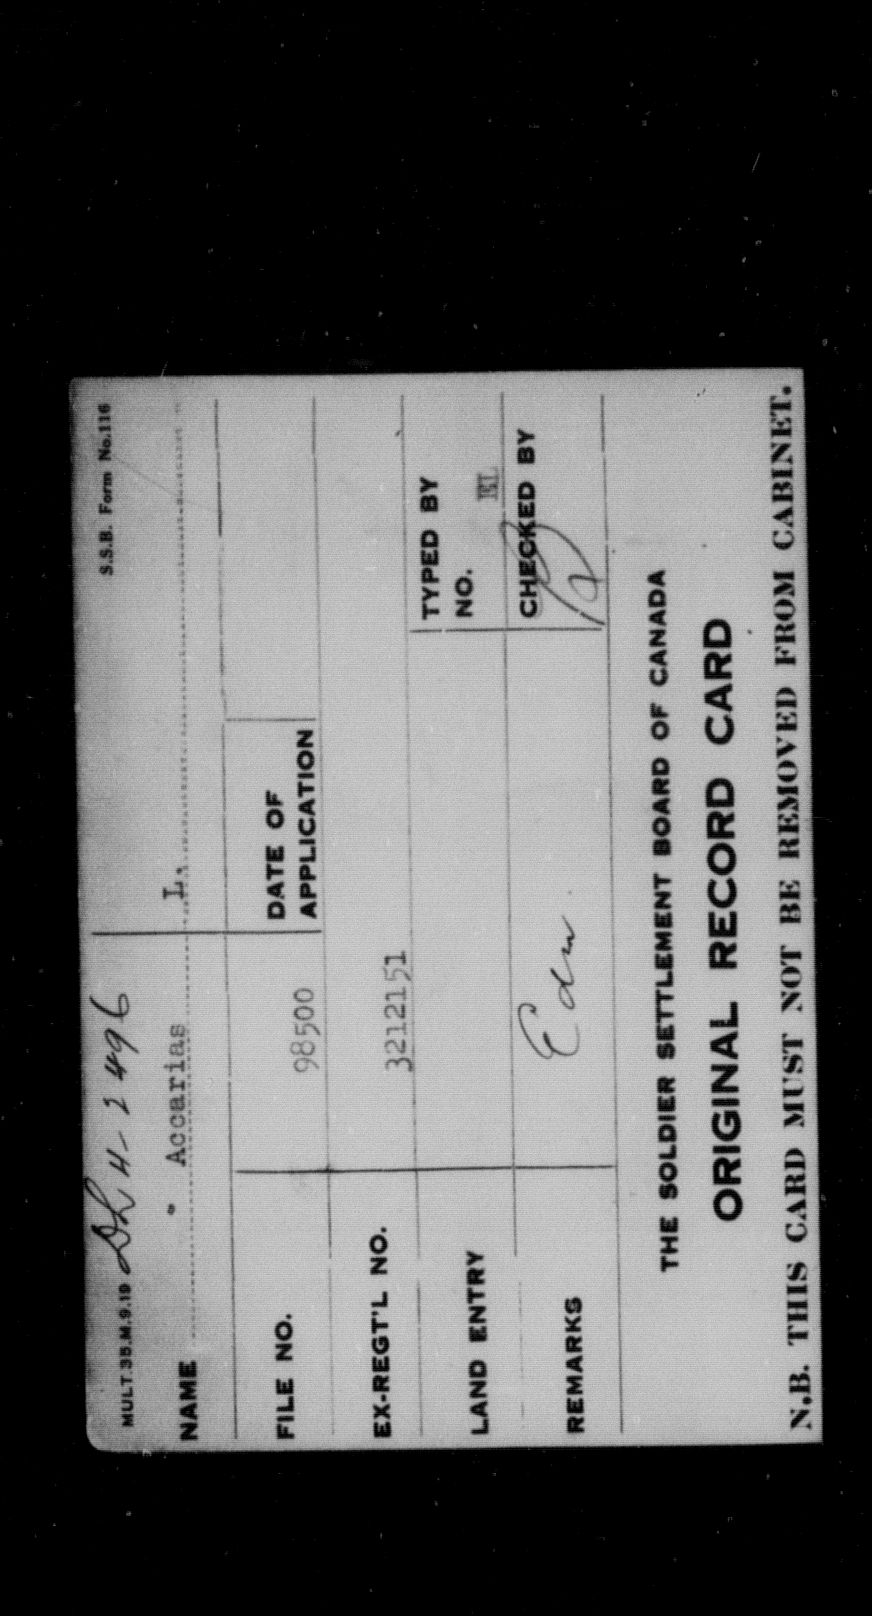 MULT.35.M.9.19 DL 4-2496 S.S.B. Form No.116
NAME - Accarias L.
FILE NO. 98500 DATE OF APPLICATION
EX-REGT'L NO. 3212151
LAND ENTRY TYPED BY
NO. EL
REMARKS Edm CHECKED BY
THE SOLDIER SETTLEMENT BOARD OF CANADA
ORIGINAL RECORD CARD
N.B. THIS CARD MUST NOT BE REMOVED FROM CABINET.